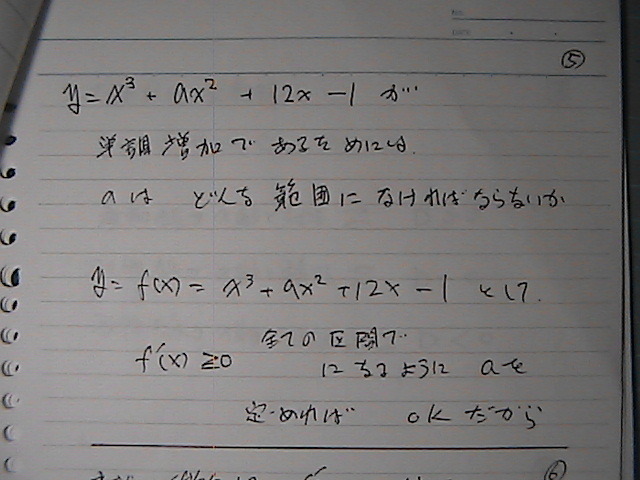 ⑤
y = x³ + ax² + 12x - 1 が
単調増加であるためには.
aは どんな範囲になければならないか
y = f(x) = x³ + ax² + 12x - 1 として.
全ての区間で
f'(x) ≧0 になるように aを
定めれば OKだから
⑥